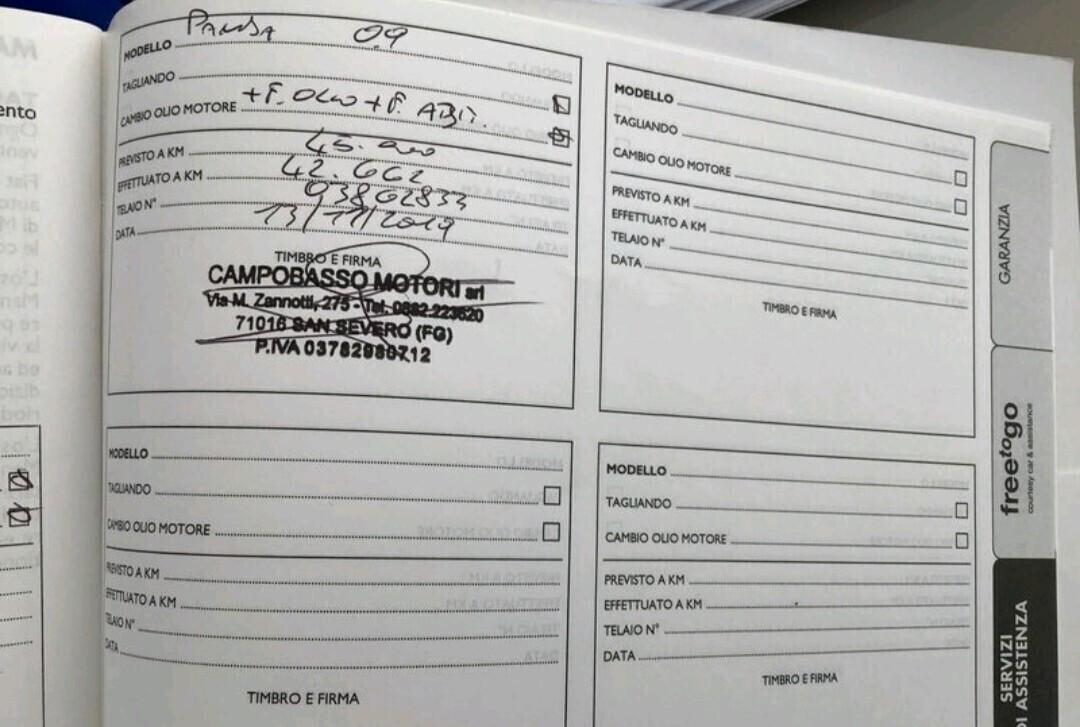 ento
MODELLO PANDA 0.9
TAGLIANDO
CAMBIO OLIO MOTORE +F. OLIO + F. ABIT.
PREVISTO A KM 45.000
EFFETTUATO A KM 42.662
TELAIO N° 03802833
DATA 13/11/2019
TIMBRO E FIRMA
CAMPOBASSO MOTORI srl
Via M. Zannotti, 275 - Tel. 0882.223620
71016 SAN SEVERO (FG)
P.IVA 03782980712
MODELLO
TAGLIANDO
CAMBIO OLIO MOTORE
PREVISTO A KM
EFFETTUATO A KM
TELAIO N°
DATA
TIMBRO E FIRMA
MODELLO
TAGLIANDO
CAMBIO OLIO MOTORE
PREVISTO A KM
EFFETTUATO A KM
TELAIO N°
DATA
TIMBRO E FIRMA
MODELLO
TAGLIANDO
CAMBIO OLIO MOTORE
PREVISTO A KM
EFFETTUATO A KM
TELAIO N°
DATA
TIMBRO E FIRMA
GARANZIA
freetogo
courtesy car & assistance
SERVIZI
DI ASSISTENZA